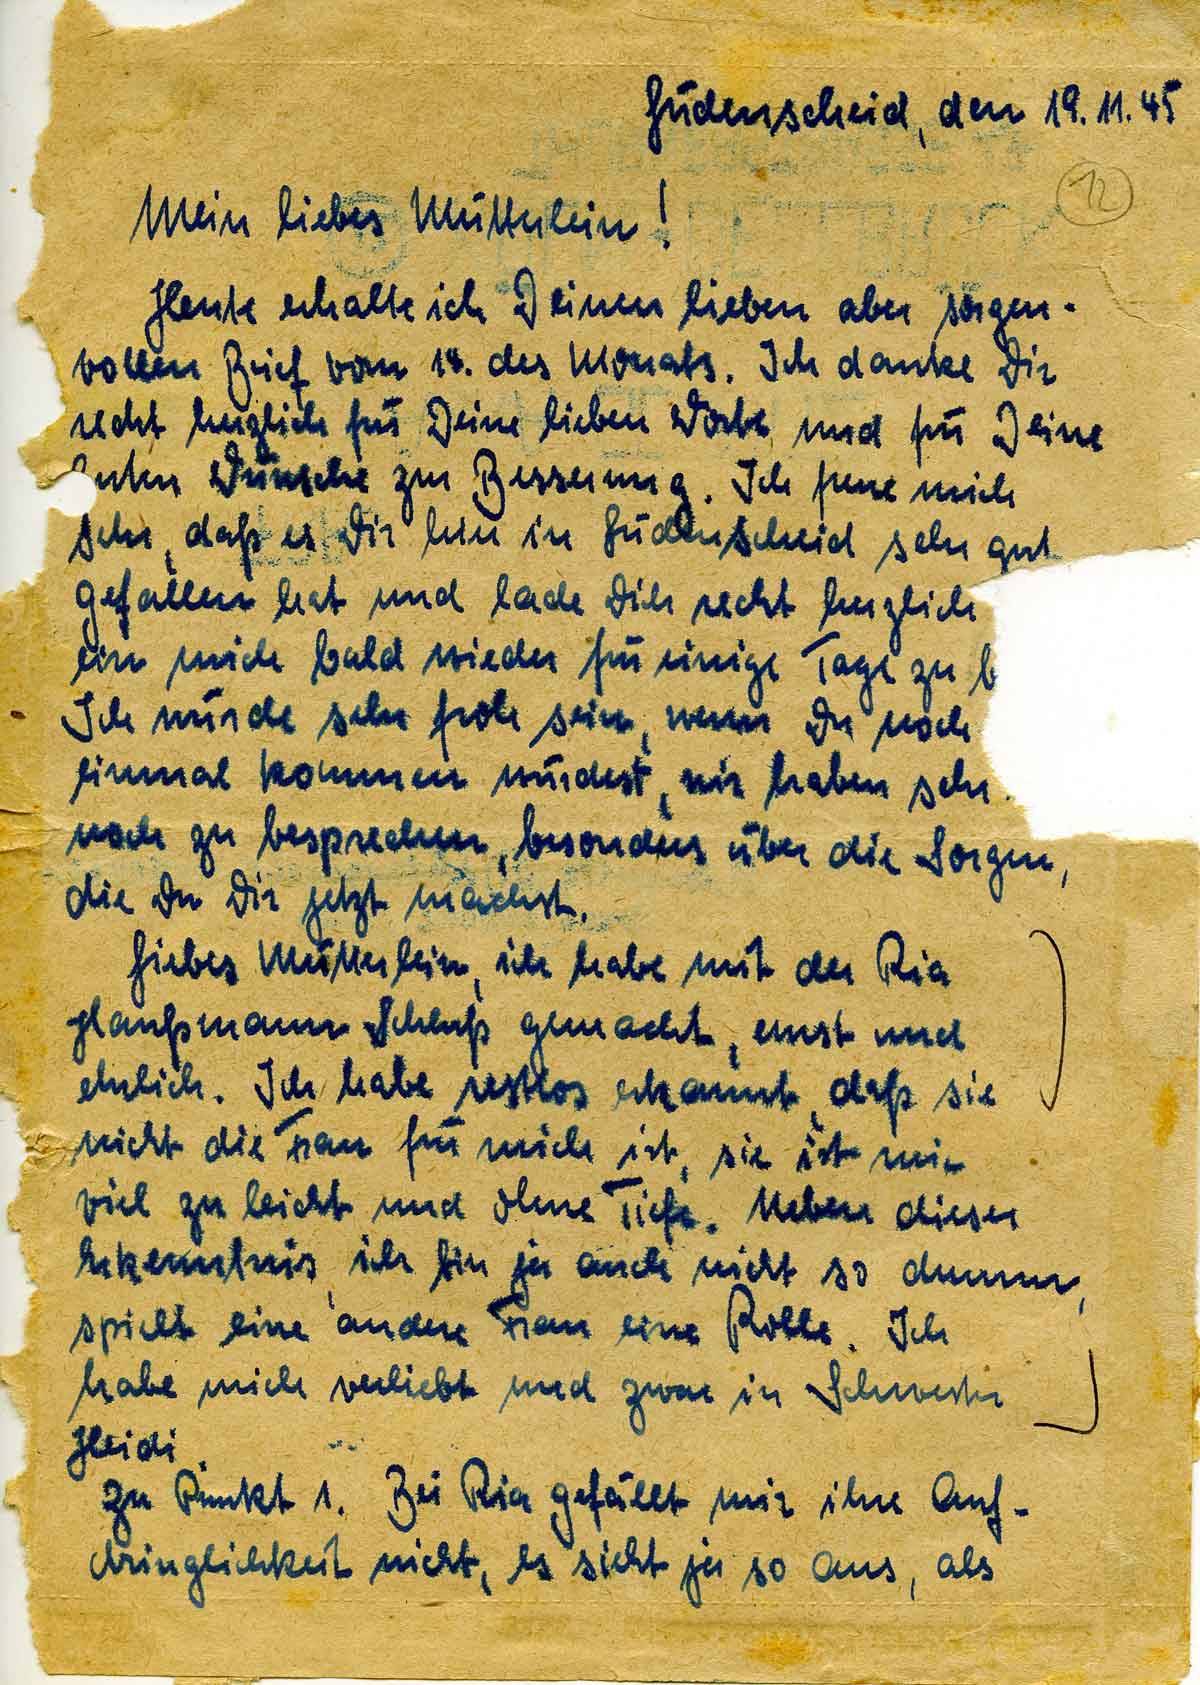 Lüdenscheid, den 19.11.45
12
Mein liebes Mütterlein!
Heute erhalte ich Deinen lieben aber sorgen-
vollen Brief vom 18. des Monats. Ich danke Dir
recht herzlich für Deine lieben Worte und für Deine
guten Wünsche zur Besserung. Ich freue mich
sehr, daß es Dir hier in Lüdenscheid sehr gut
gefallen hat und lade Dich recht herzlich
ein mich bald wieder für einige Tage zu b
Ich würde sehr froh sein, wenn Du noch
einmal kommen würdest, wir haben sehr
noch zu besprechen, besonders über die Sorgen,
die Du Dir jetzt machst.
Liebes Mütterlein, ich habe mit der Ria
Haußmann Schluß gemacht, ernst und
ehrlich. Ich habe restlos erkannt, daß sie
nicht die Frau für mich ist, sie ist mir
viel zu leicht und ohne Tiefe. Neben dieser
Erkenntnis, ich bin ja auch nicht so dumm,
spielt eine andere Frau eine Rolle. Ich
habe mich verliebt und zwar in Schwester
Heidi.
Zu Punkt 1. Bei Ria gefällt mir ihre Auf-
dringlichkeit nicht, es sieht ja so aus, als